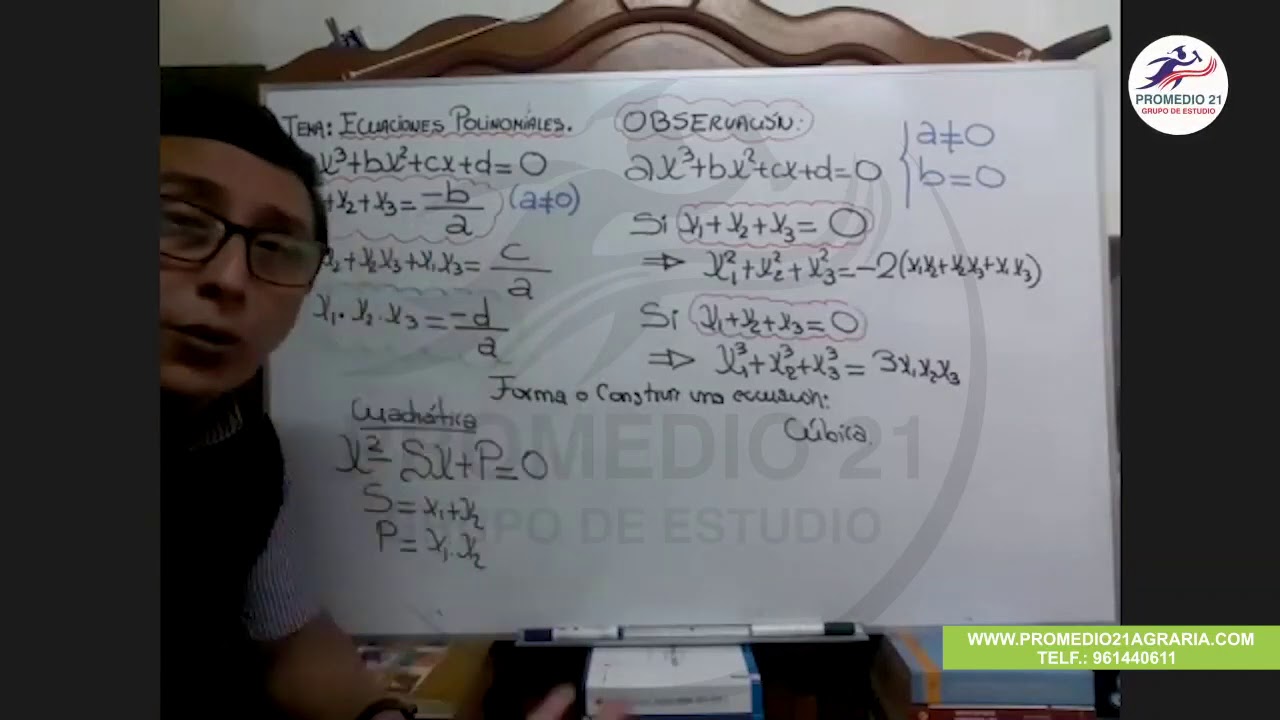 TEMA: ECUACIONES POLINOMIALES.
x³+bx²+cx+d=0
+x₂+x₃=-b/a (a≠0)
x₂+x₂x₃+x₁x₃=c/a
x₁·x₂·x₃=-d/a
OBSERVACIÓN:
ax³+bx²+cx+d=0 { a≠0
b=0
Si x₁+x₂+x₃=0
⇒ x₁²+x₂²+x₃²=-2(x₁x₂+x₂x₃+x₁x₃)
Si x₁+x₂+x₃=0
⇒ x₁³+x₂³+x₃³=3x₁x₂x₃
Forma o Construir una ecuación:
Cuadrática
x²-Sx+P=0
S=x₁+x₂
P=x₁.x₂
Cúbica.
PROMEDIO 21
GRUPO DE ESTUDIO
PROMEDIO 21
GRUPO DE ESTUDIO
WWW.PROMEDIO21AGRARIA.COM
TELF.: 961440611